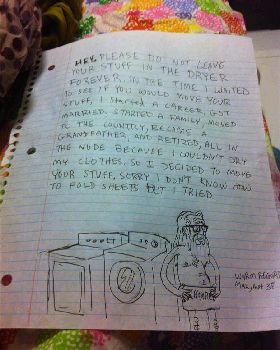 HEY, PLEASE DO NOT LEAVE
YOUR STUFF IN THE DRYER
FOREVER. IN THE TIME I WAITED
TO SEE IF YOU WOULD MOVE YOUR
STUFF, I STARTED A CAREER, GOT
MARRIED, STARTED A FAMILY, MOVED
TO THE COUNTRY, BECAME A
GRANDFATHER, AND RETIRED, ALL IN
THE NUDE BECAUSE I COULDN'T DRY
MY CLOTHES. SO I DECIDED TO MOVE
YOUR STUFF, SORRY I DON'T KNOW HOW
TO FOLD SHEETS BUT I TRIED
WARM REGARDS